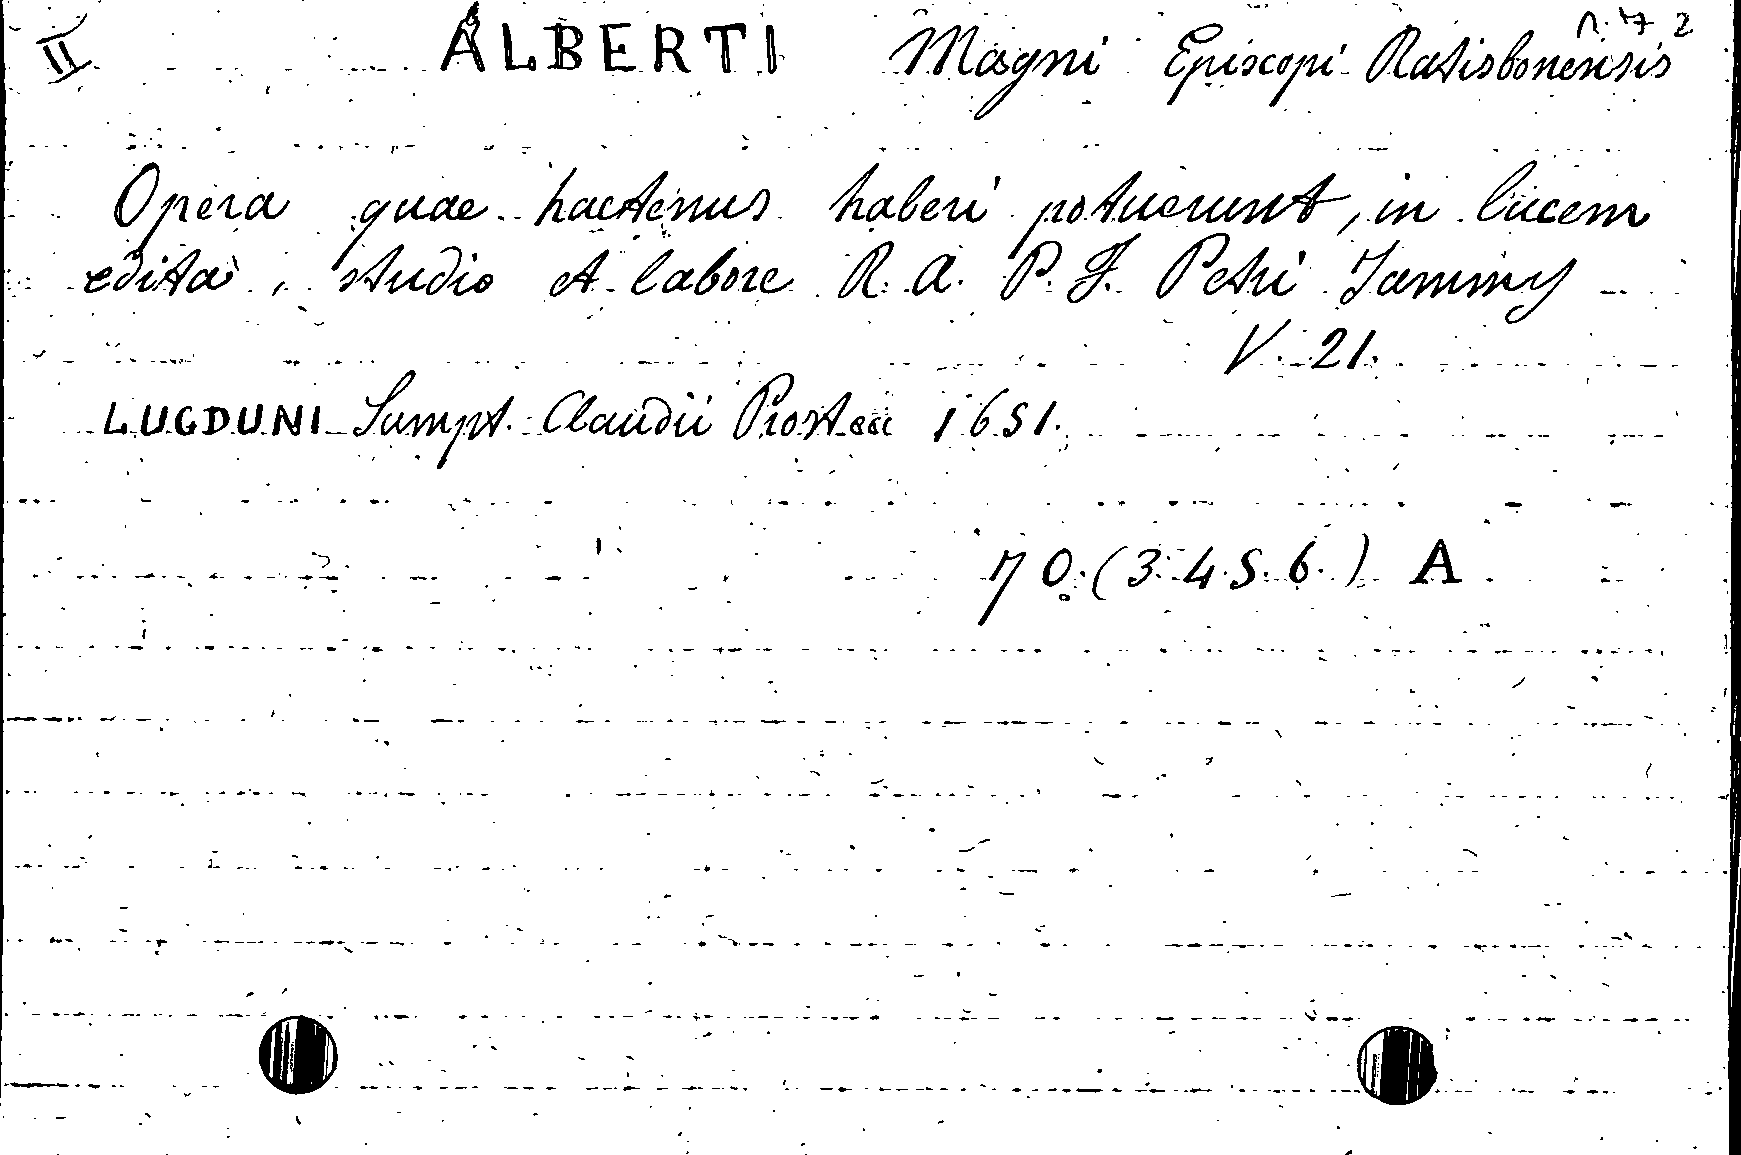 II ALBERTI Magni Episcopi Ratisbonensis
n. 17 2
Opera quae hactenus haberi potuerunt, in lucem
edita, studio et labore R. A. P. F. Petri Jammy
V. 21.
LUGDUNI Sumpt. Claudii Prost 1651.
70. (3. 4. 5. 6.) A